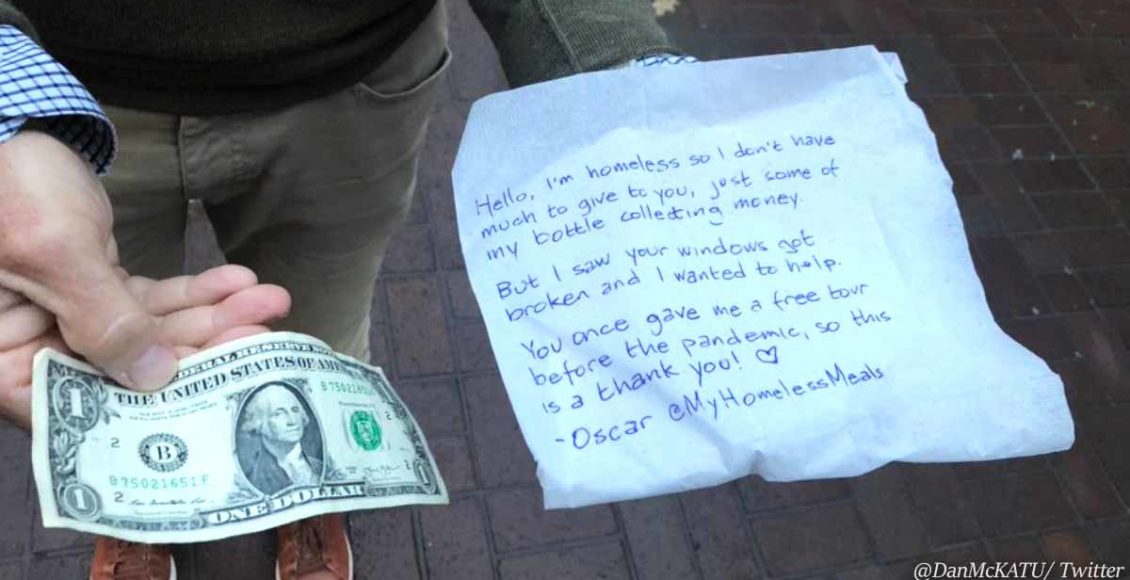 Hello, I'm homeless so I don't have
much to give to you, just some of
my bottle collecting money.
But I saw your windows got
broken and I wanted to help.
You once gave me a free tour
before the pandemic, so this
is a thank you! ♡
-Oscar @MyHomelessMeals
FEDERAL RESERVE NOTE
THE UNITED STATES OF AMERICA
1
B 7502165
2
B
2
B 75021651 F
2
1
1
ONE DOLLAR
@DanMcKATU/ Twitter